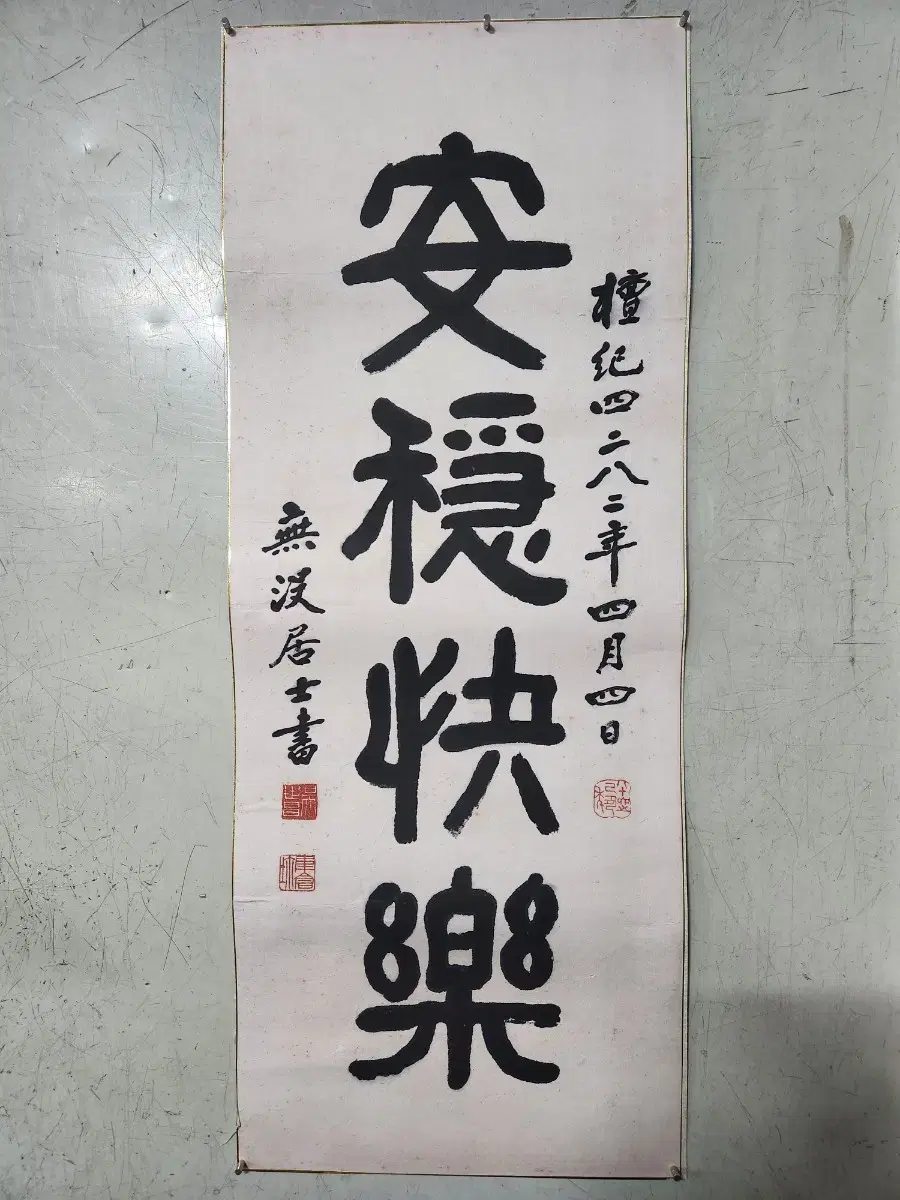 檀紀四二八二年四月四日
安穩快樂
無没居士書